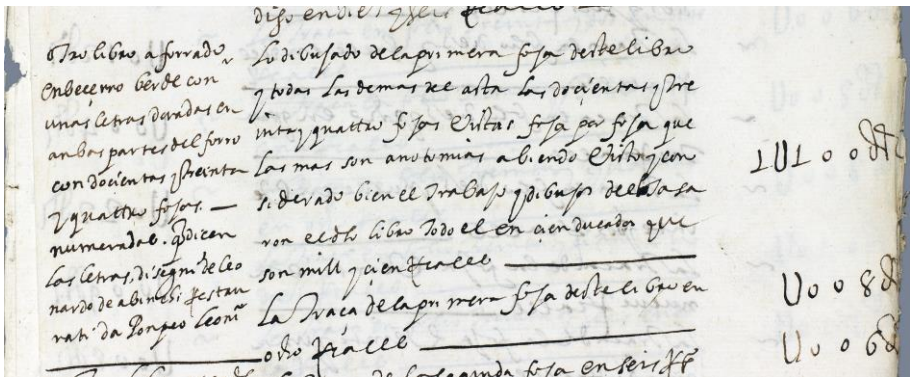 diso en diez y seis Reales
otro libro aforrado
en beçerro berde con
unas letras doradas en
anbas partes del forro
con docientas y treinta
y quattro fojas —
numeradas. q̃ dicen
las letras, disegni de leo
nardo de abinchi Restau
rati da Pompeo Leoni
Lo dibujado de la primera foja deste libro
y todas las demas de asta las docientas y tre
inta y quattro fojas vistas foja por foja que
las mas son anotomias abiendo visto y con
siderado bien el trabajo y dibujos de
ron el dho libro todo el en cien ducados que
son mill y cien Reales
La traça de la primera foja deste libro en
ocho Reales
de la segunda foja en seis Rs
1U100
U008
U006